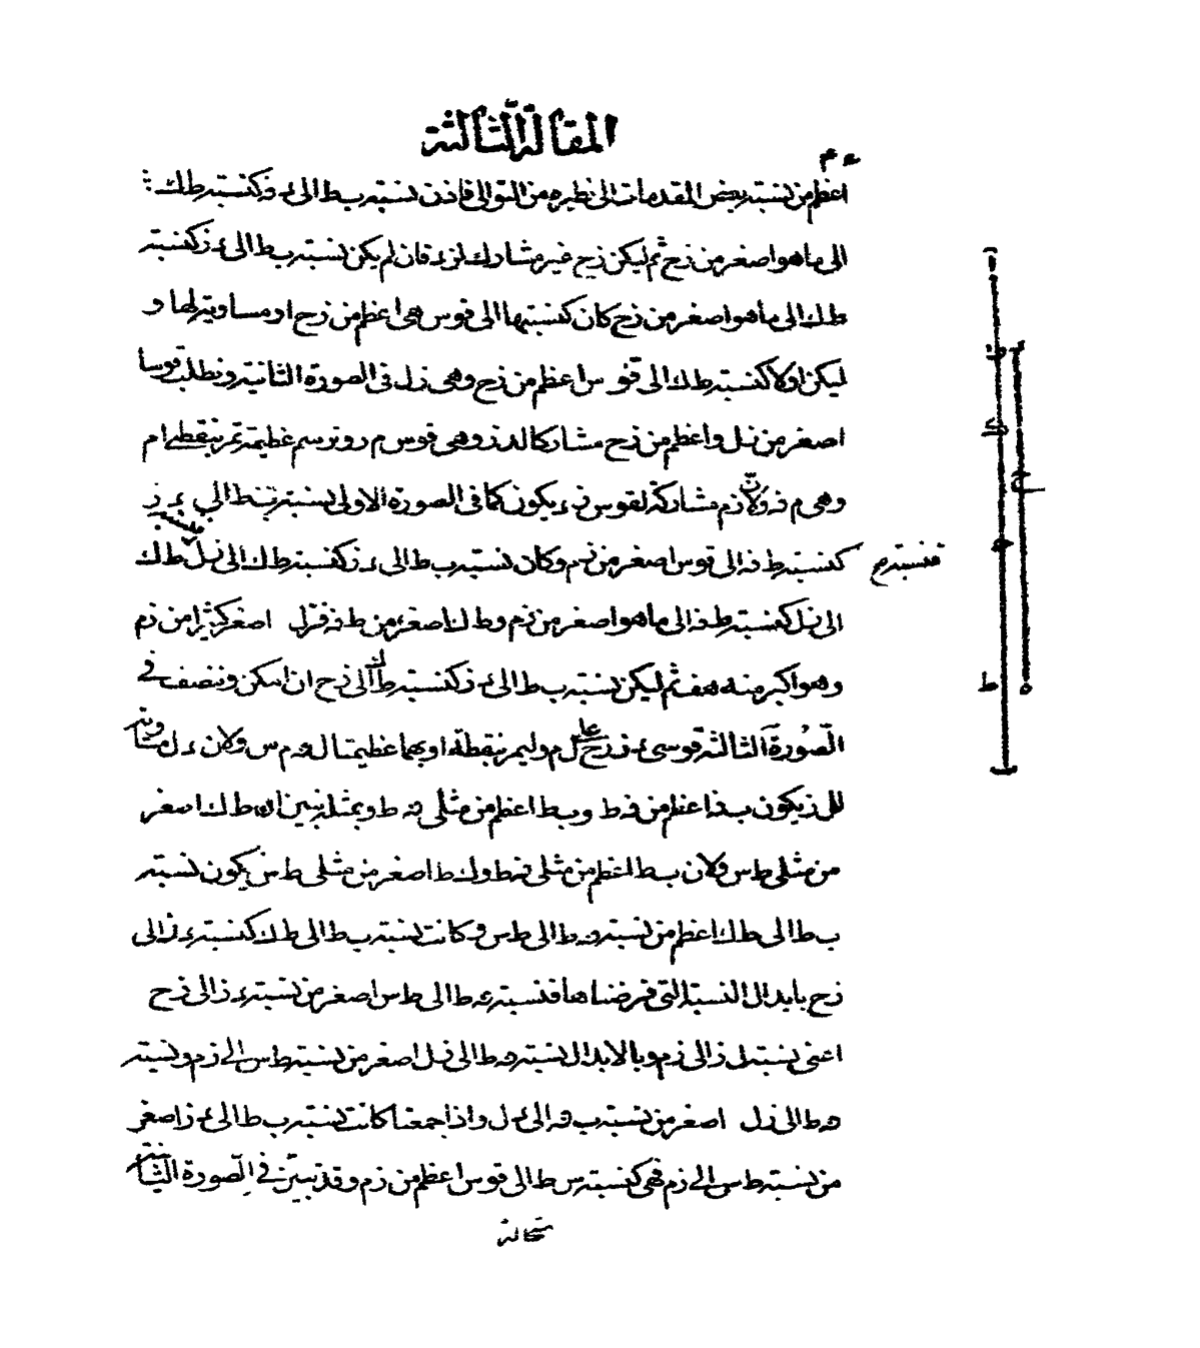 المقالة الثالثة
٤٣
اعظم من نسبة بعض المقدمات الى نظيره من التوالى فاذن نسبة ب ط الى ء ز كنسبة ط ك
الى ما هو اصغر من زح ثم ليكن زح غير مشارك لز ء فان لم يكن نسبة ب ط الى ء ز كنسبة
ط ك الى ما هو اصغر من زح كان كنسبتها الى قوس هى اعظم من زح او مساوية لها و
ليكن اولا كنسبة ط ك الى قوس اعظم من زح وهى زل فى الصورة الثانية ونطلب قوسا
اصغر من زل واعظم من زح مشاركا لد ز وهى قوس م ز ونرسم عظيمة تمر بنقطتى ا م
وهى م ه ولان زم مشاركة لقوس ز ء يكون كما فى الصورة الاولى نسبة ب ط الى ء ز
كنسبة ط ه الى قوس اصغر من زم وكان نسبة ب ط الى ء ز كنسبة ط ك الى زل ط ك
فنسبة
الى زل كنسبة ط ه الى ما هو اصغر من زم و ط ك اصغر من ط ه فزل اصغر كثيرا من زم
وهو اكبر منه هف ثم ليكن نسبة ب ط الى ء ز كنسبة ط ك الى زح ان امكن وننصف فى
الصورة الثالثة قوسى ء ز زح على ل م وليمر بنقطة ا وبهما عظيمتا ل ه م س ولان ء ل مساوية
لل ز يكون ب ه اعظم من ه ط و ب ط اعظم من مثلى ه ط وبمثله نبين ان ط ك اصغر
من مثلى ط س ولان ب ط اعظم من مثلى ه ط و ك ط اصغر من مثلى ط س يكون نسبة
ب ط الى ط ك اعظم من نسبة ه ط الى ط س وكانت نسبة ب ط الى ط ك كنسبة ء ز الى
زح بابدال النسبة التى فرضناها فنسبة ه ط الى ط س اصغر من نسبة ء ز الى زح
اعنى نسبة ل ز الى زم وبالابدال نسبة ه ط الى زل اصغر من نسبة ط س الى زم ونسبة
ه ط الى زل اصغر من نسبة ب ه الى ء ل واذا جمعنا كانت نسبة ب ط الى ء ز اصغر
من نسبة ط س الى زم فهى كنسبة س ط الى قوس اعظم من زم وقد تبين فى الصورة الثانية